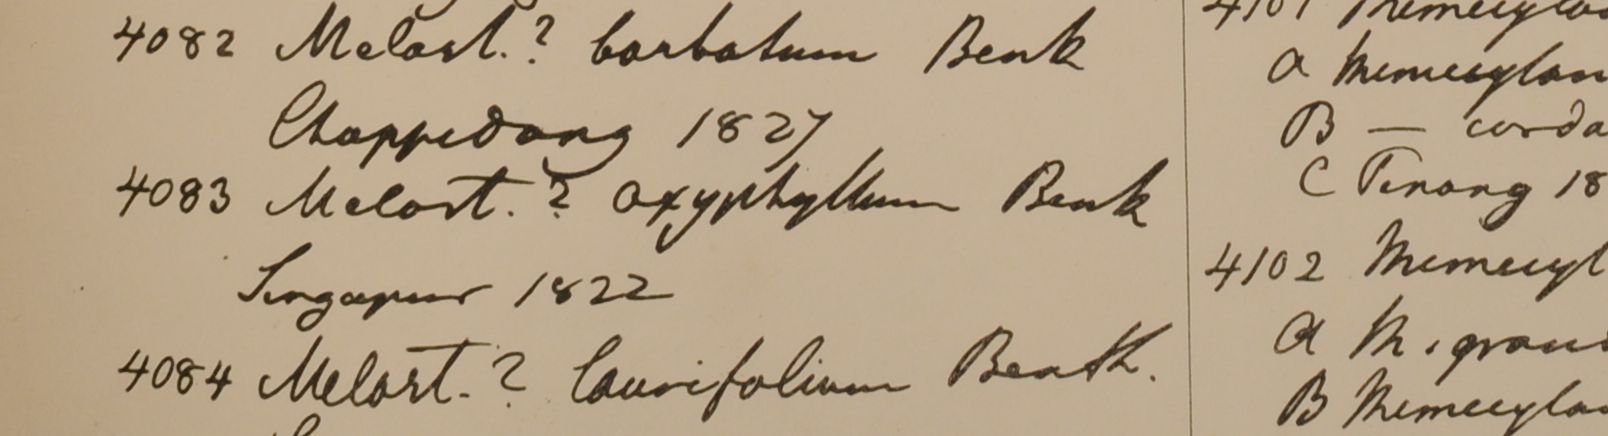 4082 Melast. ? barbatum Benth
Chappedong 1827
4083 Melast. ? oxyphyllum Benth
Singapur 1822
4084 Melast. ? laurifolium Benth.
4101 Memecylon
a Memecylon
B — corda
C Penang 18
4102 Memecyl
a M. grand
B Memecylon